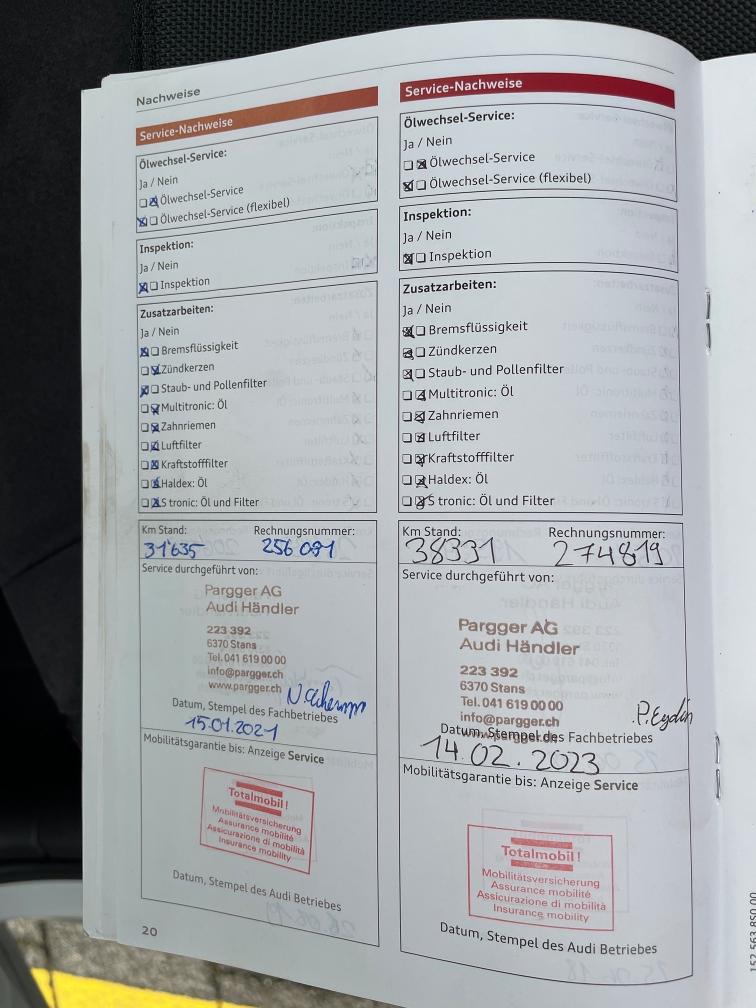 Nachweise
Service-Nachweise
Ölwechsel-Service:
Ja / Nein
Ölwechsel-Service
Ölwechsel-Service (flexibel)
Inspektion:
Ja / Nein
Inspektion
Zusatzarbeiten:
Ja / Nein
Bremsflüssigkeit
Zündkerzen
Staub- und Pollenfilter
Multitronic: Öl
Zahnriemen
Luftfilter
Kraftstofffilter
Haldex: Öl
S tronic: Öl und Filter
Km Stand: Rechnungsnummer:
31'635 256 091
Service durchgeführt von:
Pargger AG
Audi Händler
223 392
6370 Stans
Tel. 041 619 00 00
info@pargger.ch
www.pargger.ch
Datum, Stempel des Fachbetriebes
15.01.2021
Mobilitätsgarantie bis: Anzeige Service
Totalmobil!
Mobilitätsversicherung
Assurance mobilité
Assicurazione di mobilità
Insurance mobility
Datum, Stempel des Audi Betriebes
20
Service-Nachweise
Ölwechsel-Service:
Ja / Nein
Ölwechsel-Service
Ölwechsel-Service (flexibel)
Inspektion:
Ja / Nein
Inspektion
Zusatzarbeiten:
Ja / Nein
Bremsflüssigkeit
Zündkerzen
Staub- und Pollenfilter
Multitronic: Öl
Zahnriemen
Luftfilter
Kraftstofffilter
Haldex: Öl
S tronic: Öl und Filter
Km Stand: Rechnungsnummer:
38331 274819
Service durchgeführt von:
Pargger AG
Audi Händler
223 392
6370 Stans
Tel. 041 619 00 00
info@pargger.ch
P. Eydin
Datum, Stempel des Fachbetriebes
14.02.2023
Mobilitätsgarantie bis: Anzeige Service
Totalmobil!
Mobilitätsversicherung
Assurance mobilité
Assicurazione di mobilità
Insurance mobility
Datum, Stempel des Audi Betriebes
152.563.8S0.00